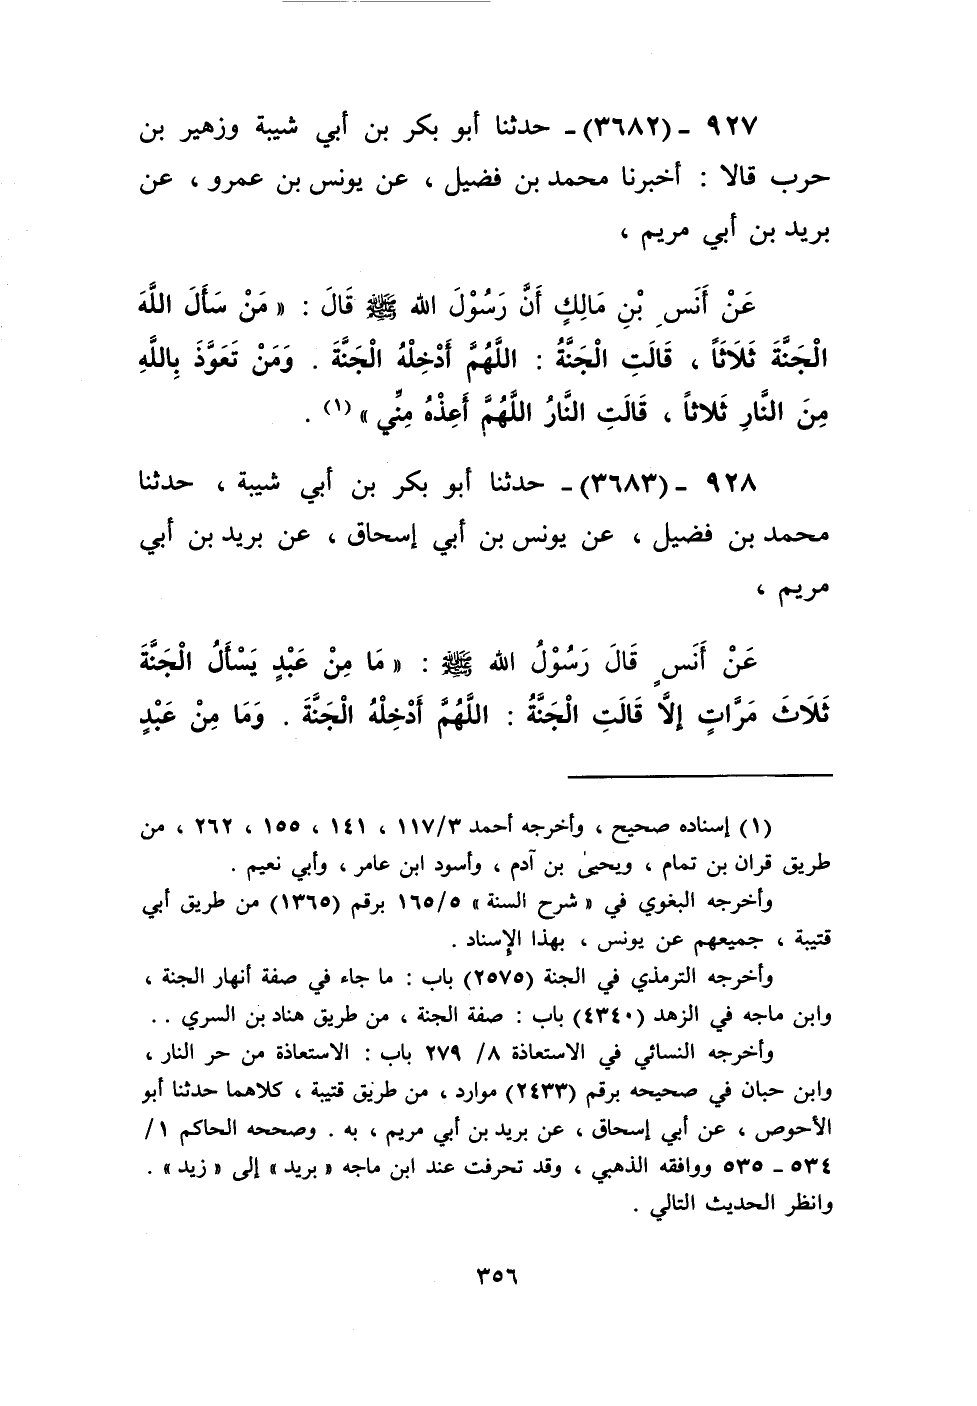 ٩٢٧ ـ (٣٦٨٢)ـ حدثنا أبو بكر بن أبي شيبة وزهير بن
حرب قالا : أخبرنا محمد بن فضيل ، عن يونس بن عمرو ، عن
بريد بن أبي مريم ،
عَنْ أَنَسِ بْنِ مَالِكٍ أَنَّ رَسُوْلَ الله ﷺ قَالَ : « مَنْ سَأَلَ اللَّهَ
الْجَنَّةَ ثَلَاثَاً ، قَالَتِ الْجَنَّةُ : اللَّهُمَّ أَدْخِلْهُ الْجَنَّةَ . وَمَنْ تَعَوَّذَ بِاللَّهِ
مِنَ النَّارِ ثَلاثاً ، قَالَتِ النَّارُ اللَّهُمَّ أَعِذْهُ مِنِّي » (١) .
٩٢٨ ـ (٣٦٨٣)ـ حدثنا أبو بكر بن أبي شيبة ، حدثنا
محمد بن فضيل ، عن يونس بن أبي إسحاق ، عن بريد بن أبي
مريم ،
عَنْ أَنَسٍ قَالَ رَسُوْلُ الله ﷺ : « مَا مِنْ عَبْدٍ يَسْأَلُ الْجَنَّةَ
ثَلَاثَ مَرَّاتٍ إِلاَّ قَالَتِ الْجَنَّةُ : اللَّهُمَّ أَدْخِلْهُ الْجَنَّةَ . وَمَا مِنْ عَبْدٍ
(١) إسناده صحيح ، وأخرجه أحمد ١١٧/٣ ، ١٤١ ، ١٥٥ ، ٢٦٢ ، من
طريق قران بن تمام ، ويحيىٰ بن آدم ، وأسود ابن عامر ، وأبي نعيم .
وأخرجه البغوي في « شرح السنة » ١٦٥/٥ برقم (١٣٦٥) من طريق أبي
قتيبة ، جميعهم عن يونس ، بهذا الإسناد .
وأخرجه الترمذي في الجنة (٢٥٧٥) باب : ما جاء في صفة أنهار الجنة ،
وابن ماجه في الزهد (٤٣٤٠) باب : صفة الجنة ، من طريق هناد بن السري . .
وأخرجه النسائي في الاستعاذة ٨/ ٢٧٩ باب : الاستعاذة من حر النار ،
وابن حبان في صحيحه برقم (٢٤٣٣) موارد ، من طريق قتيبة ، كلاهما حدثنا أبو
الأحوص ، عن أبي إسحاق ، عن بريد بن أبي مريم ، به . وصححه الحاكم ١/
٥٣٤ ـ ٥٣٥ ووافقه الذهبي ، وقد تحرفت عند ابن ماجه « بريد » إلى « زيد » .
وانظر الحديث التالي .
٣٥٦